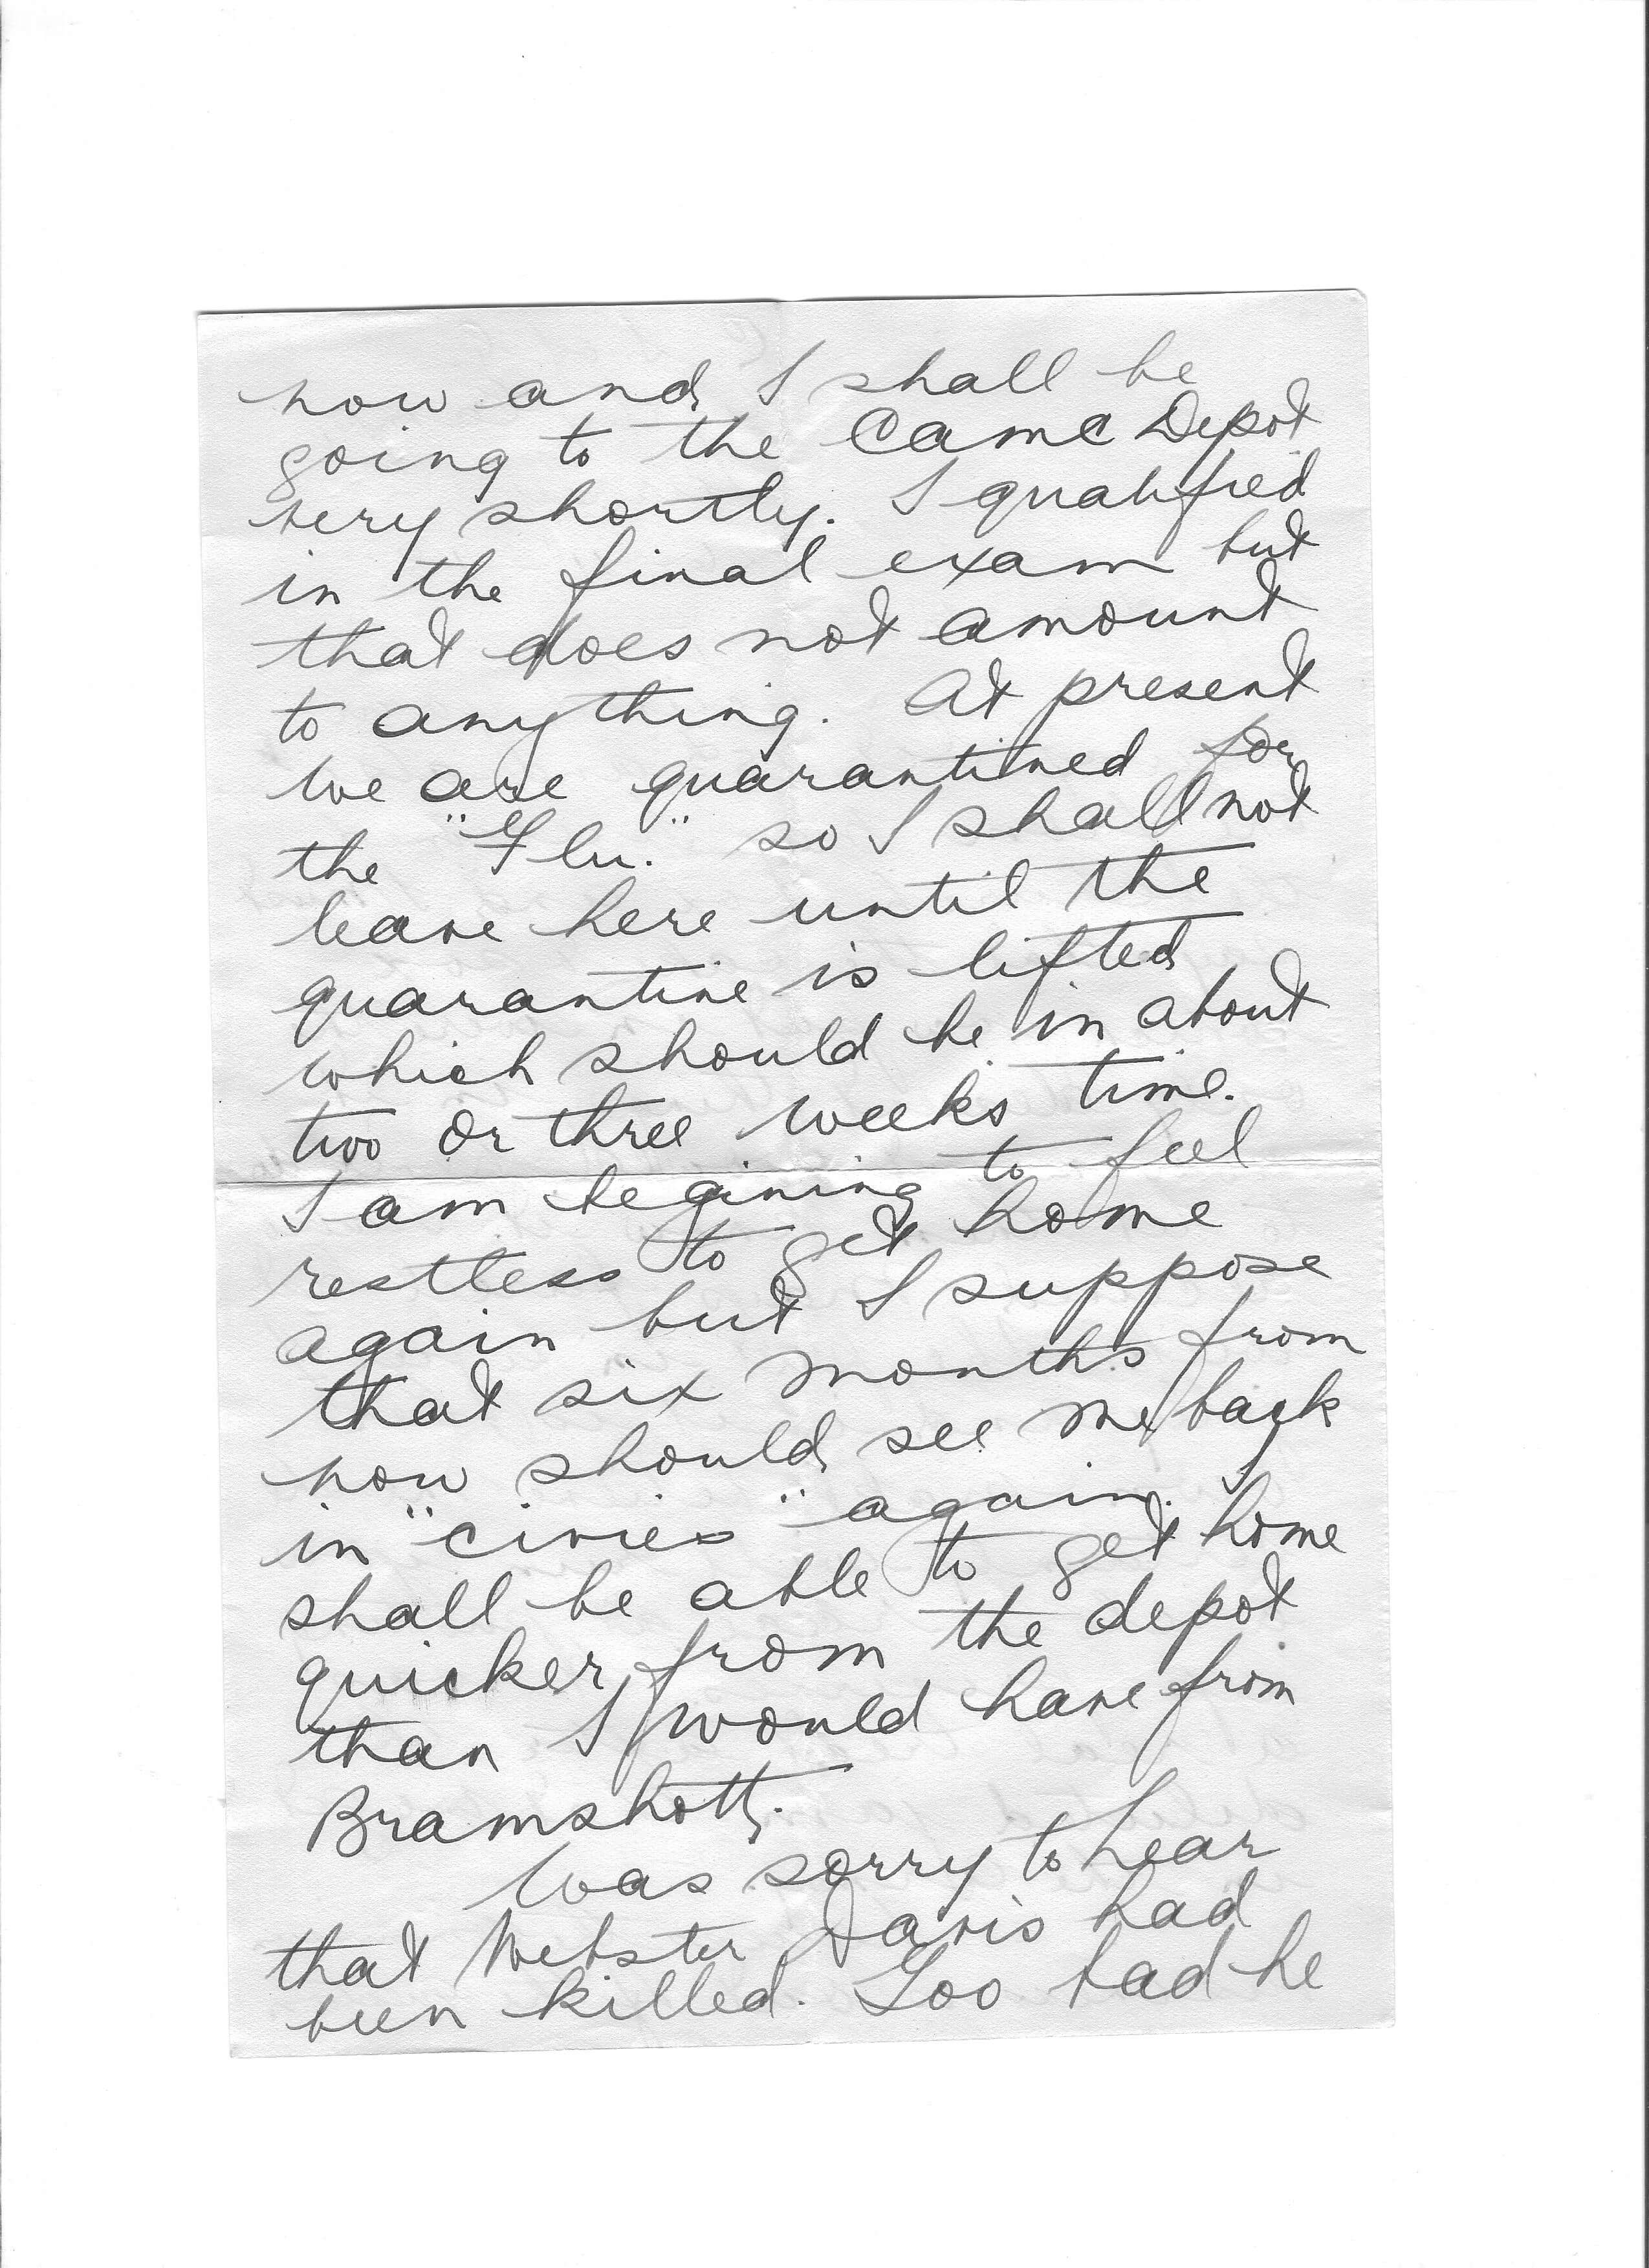 now and I shall be
going to the CAMC Depot
very shortly. I qualified
in the final exam but
that does not amount
to anything. At present
we are quarantined for
the "Flu." so I shall not
leave here until the
quarantine is lifted
which should be in about
two or three weeks time.
I am begining to feel
restless to get home
again but I suppose
that six months from
now should see me back
in "civies" again. I
shall be able to get home
quicker from the depot
than I would have from
Bramshott.
Was sorry to hear
that Webster Davis had
been killed. Too bad he